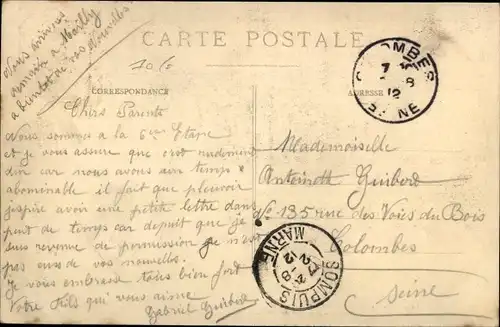 Nous arrivons
demain a Mailly
a bientot de vos Nouvelles
CARTE POSTALE
CORRESPONDANCE
ADRESSE
Chers Parents
Nous sommes a la 6eme Etape
et je vous assure que
car nous avons un temps
abominable il fait que pleuvoir
jespère avoir une petite lettre dans
peut de temps car depuis que je
suis revenu de permission je n'est
pas eus de vos nouvelles.
Je vous embrasse tous bien fort
Votre fils qui vous aime
Gabriel Guibert
Mademoiselle
Guibert
No 135 rue des Voies du Bois
Colombes
Seine
COLOMBES
SEINE
SOMPUIS
MARNE